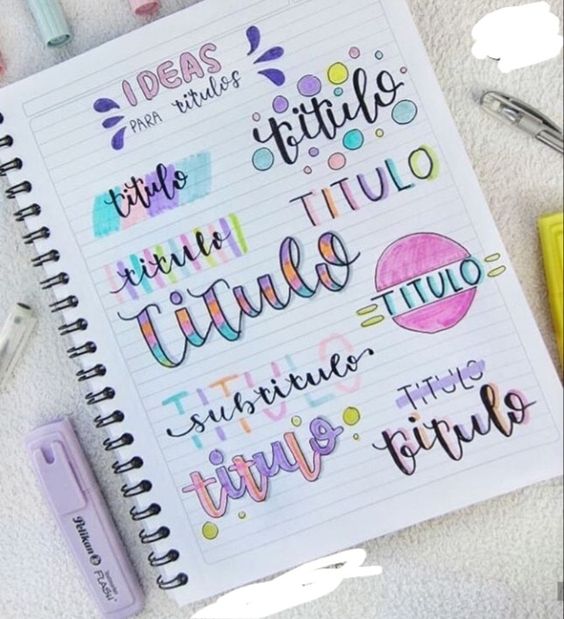 IDEAS
PARA titulos
titulo
titulo
TITULO
titulo
titulo
TITULO
TITULO
subtitulo
TITULO
titulo
titulo
Pelikan
FLASH